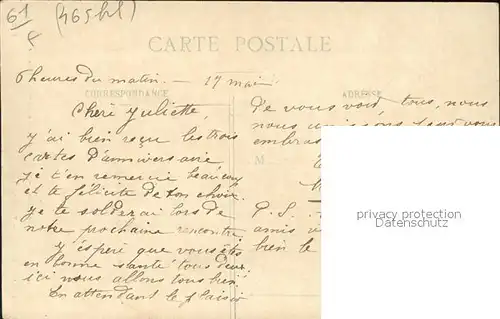 61
(465hl)
CARTE POSTALE
6 heures du matin. — 17 mai
CORRESPONDANCE
ADRESSE
Cheri Juliette,
j'ai bien reçu les trois
cartes d'anniversaire
je t'en remercie beaucoup
et te félicite de ton choix.
je te solderai lors de
notre prochaine rencontre
j'éspere que vous êtes
en bonne santé tous deux,
ici nous allons tous bien
En attendant le plaisir
de vous voir tous, nous
nous unissons pour vous
embras
M
P.S.
amis
bien le
privacy protection
Datenschutz